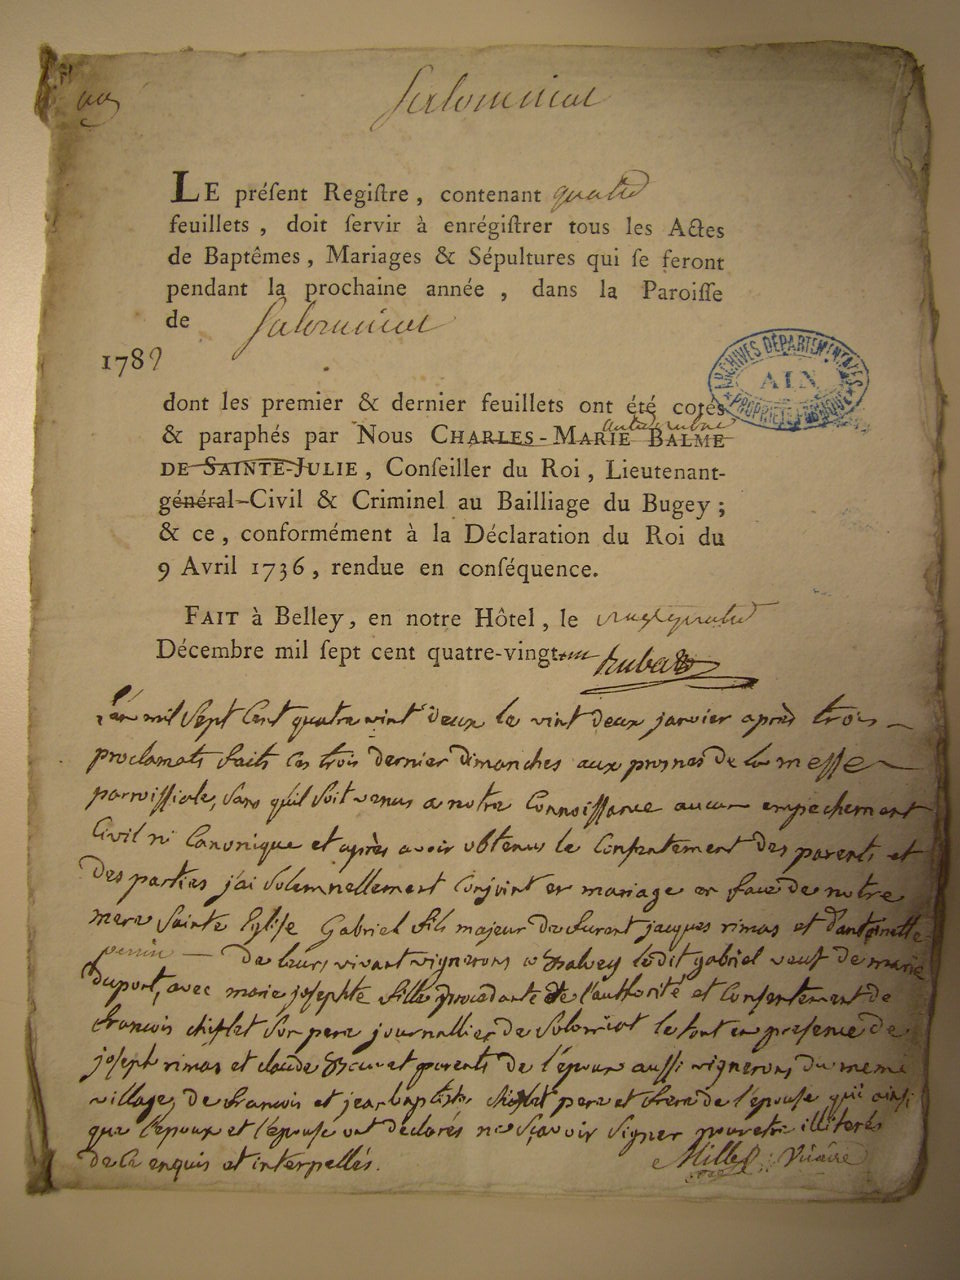 Salominat
LE préſent Regiſtre, contenant quatre
feuillets, doit ſervir à enrégiſtrer tous les Actes
de Baptêmes, Mariages & Sépultures qui ſe feront
pendant la prochaine année, dans la Paroiſſe
de Salominat
1782
ARCHIVES DÉPARTEMENTALES
AIN
PROPRIÉTÉ PUBLIQUE
dont les premier & dernier feuillets ont été cotés
& paraphés par Nous CHARLES-MARIE BALME
DE SAINTE-JULIE, Conſeiller du Roi, Lieutenant-
général-Civil & Criminel au Bailliage du Bugey;
& ce, conformément à la Déclaration du Roi du
9 Avril 1736, rendue en conſéquence.
FAIT à Belley, en notre Hôtel, le vingt quatre
Décembre mil ſept cent quatre-vingt un
L'an mil sept cent quatre vint deux le vint deux janvier après trois
proclamats faits les trois dernier dimanches aux prosnes de la messe
parroissiale, sans qu'il soit venus a notre connoissance aucun empechement
civil ni canonique et après avoir obtenus le consentement des parents et
des parties j'ai solemnellement conjoint en mariage en face de notre
mere sainte Eglise Gabriel fils majeur de furent jacques rimas et d'antoinette
de leurs vivant vignerons a ledit gabriel veuf de marie
duport, avec marie josephte fille procedante de l'authorité et consentement de
francois chiflet son pere journallier de Solomiat le tout en presence de
joseph rimas et claude et parents de l'epoux aussi vignerons du meme
village, de francois et jean baptiste chiflet pere et frere de l'epouse qui ainsi
que l'epoux et l'epouse ont declarés ne sçavoir signer pour etre illiterés
de ce enquis et interpellés. Millet Vicaire